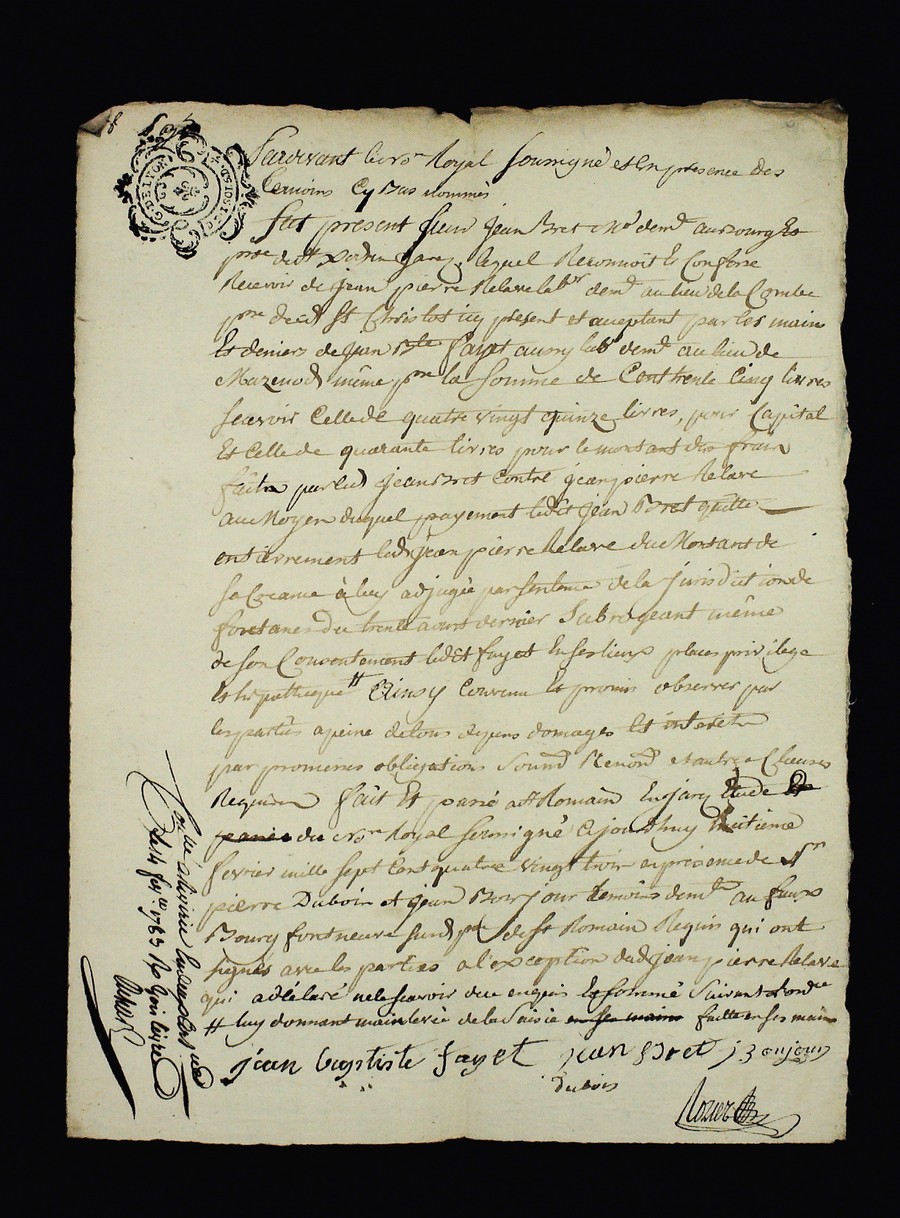 G. DE LYON
Pardevant le nore Royal soussigné et En presence des
temoins Cy bas nommés
fut present sieur jean Bret md demt au Bourg Et
psse de St Romain En jarez, lequel Reconnoit Et Confesse
Recevoir de jean pierre Relave labr demt au lieu de la Combe
psse de St Christot icy present et aceptant par les mains
Et deniers de jean Bte fayet aussy labr demt au lieu de
Mazenod même psse la somme de Cent trente Cinq livres
scavoir Celle de quatre vingt quinze livres, pour Capital
Et Celle de quarante livres pour le montant des frais
faits par led jean Bret Contre jean pierre Relave
au Moyen duquel payement ledit jean Bret quitte
entierrement led jean pierre Relave du Montant de
sa Creance à luy adjugée par sentence de la jurisdiction de
fontanes du trente aoust dernier subrogeant même
de son Consentement ledit fayet En ses lieux places privilege
Et hipotheque # Ainsy Convenu Et promis observer par
les parties a peine de tous depens domages Et interets
par promesses obligations soumd Renond et autres Clauses
Requises fait Et passé a St Romain En jarez Etude Et
passé du nore Royal soussigné Cejourdhuy huitieme
fevrier mille sept Cent quatre vingt trois en présence de Sr
pierre Dubois et jean Bonjour temoins demts au faux
Bourg fontneuve susd psse de St Romain Requis qui ont
signés avec les parties a l'exception dud jean pierre Relave
qui a déclaré ne le scavoir de ce enquis Et sommé suivant Londce
# luy donnant mainlevée de la saisie en ses mains faitte en ses mains
jean baptiste fayet jean Bret j B onjour
Dubois
Rozier
Con.lle a St
le 14 fer. 1783 R